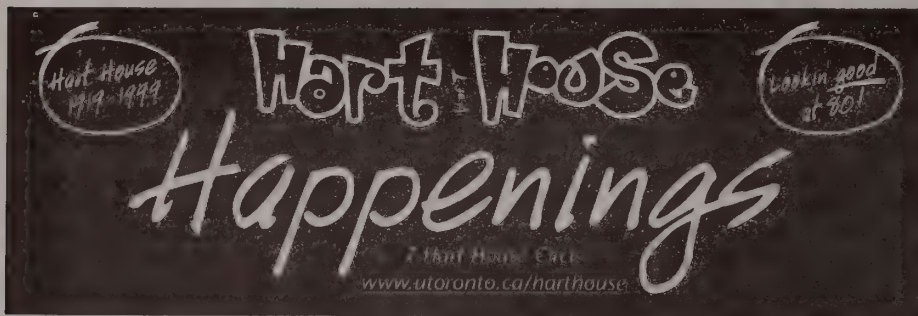 Hart House
1919-1999
Hart House
Lookin' good
at 80!
Happenings
7 Hart House Circle
www.utoronto.ca/harthouse